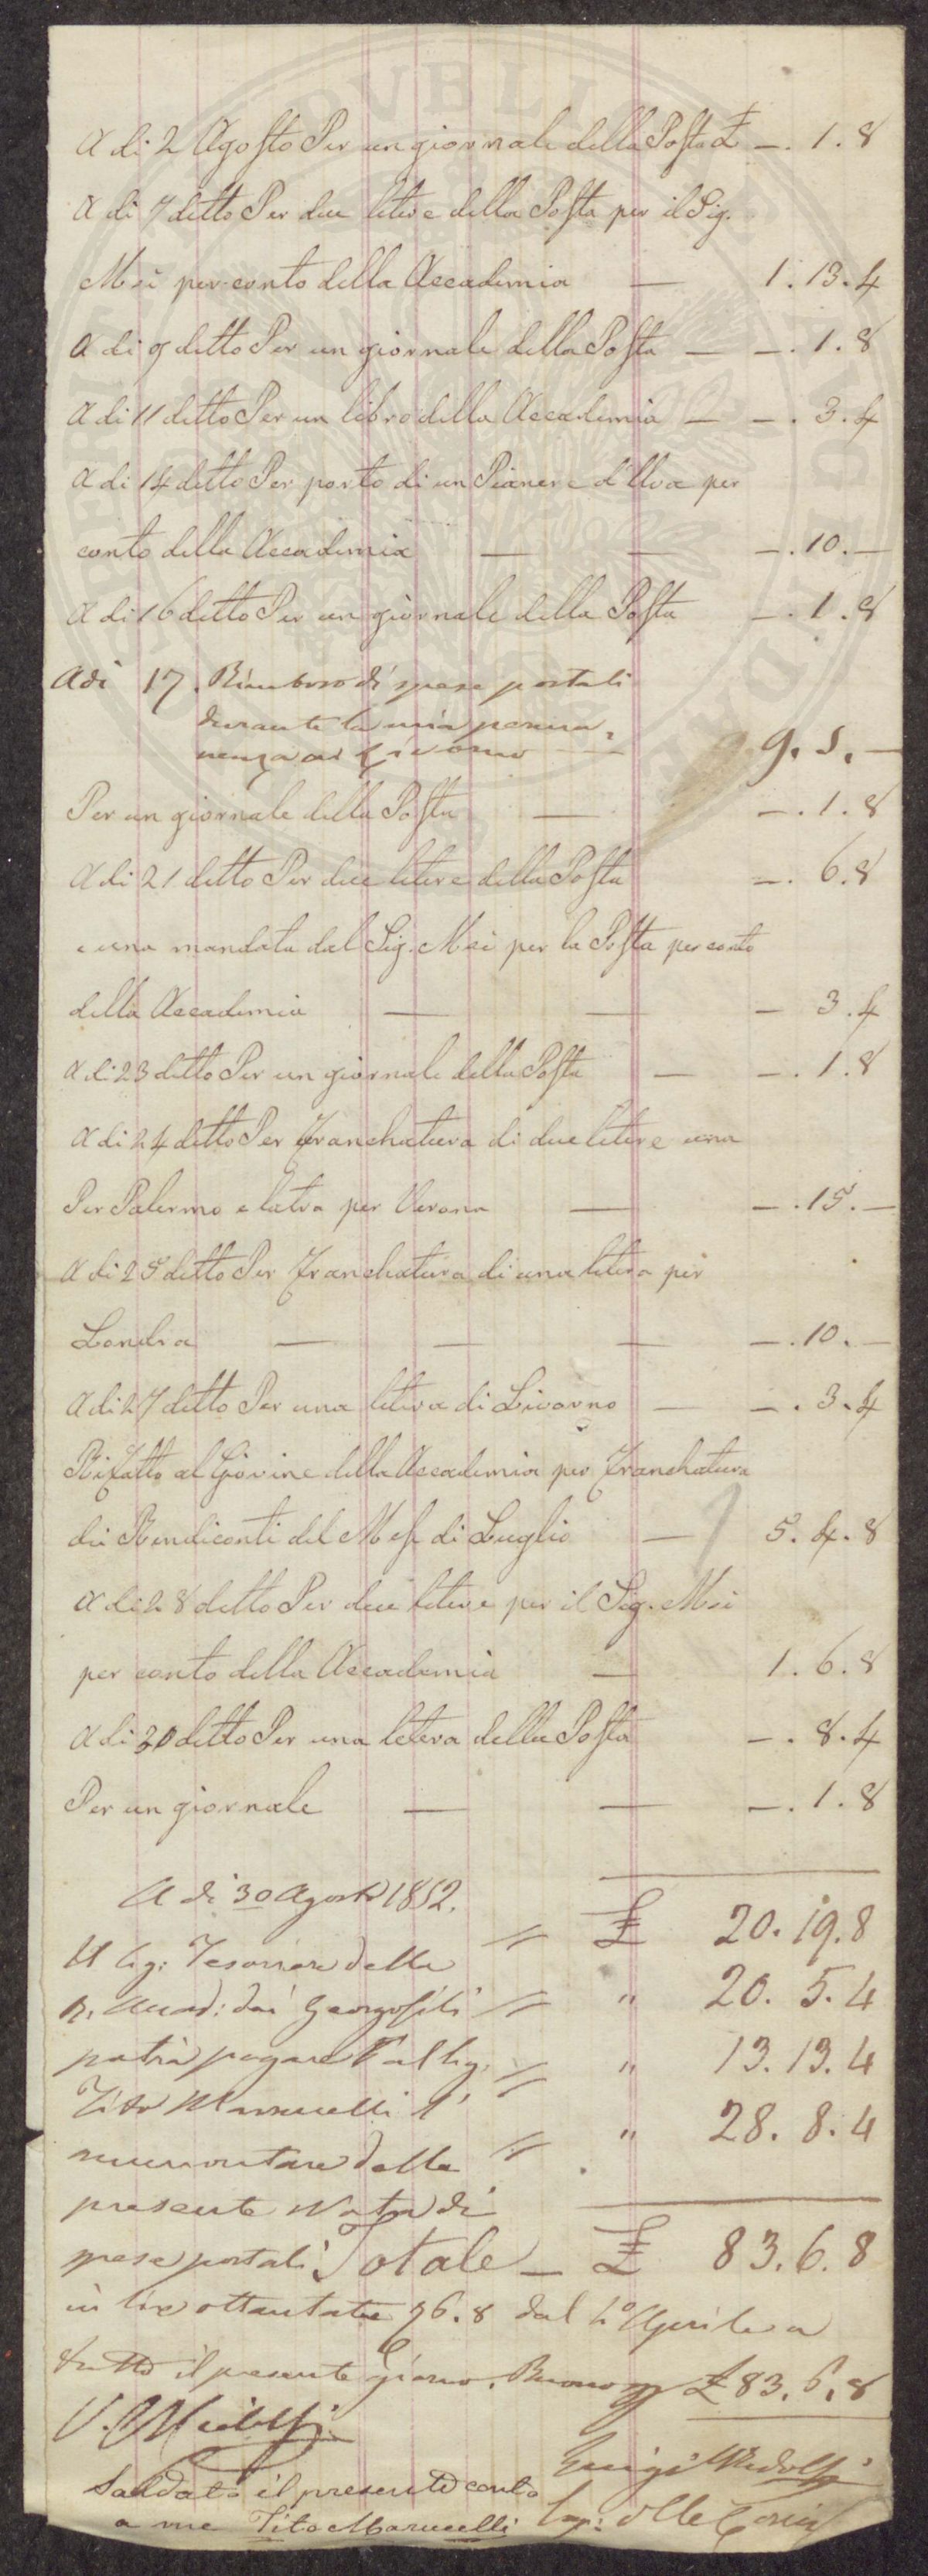 A di 2 Agosto Per un giornale della Posta £ —. 1. 8
A di 7 ditto Per due letere della Posta per il Sig.
Mei per conto della Accademia — 1. 13. 4
A di 9 ditto Per un giornale della Posta — —. 1. 8
A di 11 ditto Per un libro della Accademia — —. 3. 4
A di 14 ditto Per porto di un Pianere d'Uva per
conto della Accademia — — —. 10. —
A di 16 ditto Per un giornale della Posta —. 1. 8
Adi 17. Rimborso di spese postali
durante la mia perma=
nenza a Livorno — 9. 5. —
Per un giornale della Posta — —. 1. 8
A di 21 ditto Per due letere della Posta —. 6. 8
e una mandata dal Sig. Mei per la Posta per conto
della Accademia — — — 3. 4
A di 23 ditto Per un giornale della Posta — —. 1. 8
A di 24 ditto Per Franchatura di due letere una
Per Palermo e latra per Verona — —. 15. —
A di 25 ditto Per Franchatura di una letera per
Londra — — — —. 10. —
A di 27 ditto Per una letera di Livorno — —. 3. 4
Rifatto al Giovine della Accademia per Franchatura
dei Rendiconti del Mese di Luglio — 5. 4. 8
A di 28 ditto Per due letere per il Sig. Mei
per conto della Accademia — 1. 6. 8
A di 30 ditto Per una letera della Posta —. 8. 4
Per un giornale — — —. 1. 8
A di 30 Agosto 1852.
£ 20. 19. 8
Il Sig: Tesoriere della
R. Accad: dei Georgofili " 20. 5. 4
potrà pagare al Sig. " 13. 13. 4
Tito Marucelli l'
ammontare della " 28. 8. 4
presente Nota di
spese postali Totale — £ 83. 6. 8
in lire ottantatre 6. 8 dal 1° Aprile a
tutto il presente giorno. Buono £ 83. 6. 8
V. Ridolfi
Luigi Ridolfi
Saldato il presente conto
a me Tito Marucelli